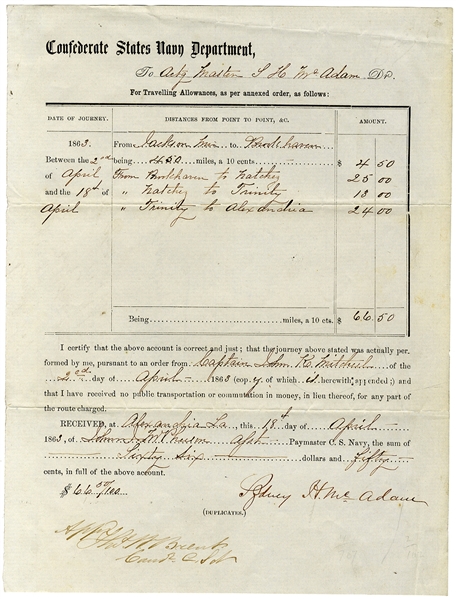 Confederate States Navy Department,
To Actg Master S H McAdam Dr.
For Travelling Allowances, as per annexed order, as follows:
DATE OF JOURNEY. DISTANCES FROM POINT TO POINT, &C. AMOUNT.
1863. From Jackson to Brookhaven
Between the 2nd being miles, a 10 cents $ 4 50
of April From Brookhaven to Natchez 25 00
and the 18th of " Natchez to Trinity 13 00
April " Trinity to Alexandria 24 00
Being miles, a 10 cts. $ 66 50
I certify that the above account is correct and just; that the journey above stated was actually per-
formed by me, pursuant to an order from Captain John K. Mitchell of the
2nd day of April 1863 (copy of which is herewith appended;) and
that I have received no public transportation or commutation in money, in lieu thereof, for any part of
the route charged.
RECEIVED, at Alexandria La, this 18th day of April
1863, of John Asst Paymaster C. S. Navy, the sum
of Sixty Six dollars and fifty
cents, in full of the above account.
$ 66 50/100 Sidney H. McAdam
(DUPLICATES.)
Appd
Thos W. Brent